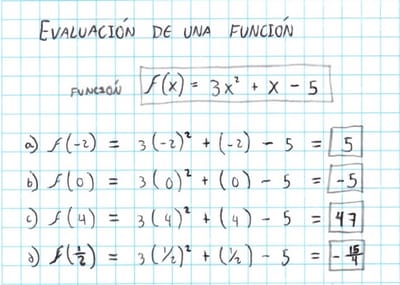 EVALUACIÓN DE UNA FUNCIÓN
FUNCIÓN f(x) = 3x² + x - 5
a) f(-2) = 3(-2)² + (-2) - 5 = 5
b) f(0) = 3(0)² + (0) - 5 = -5
c) f(4) = 3(4)² + (4) - 5 = 47
d) f(1/2) = 3(1/2)² + (1/2) - 5 = -15/4